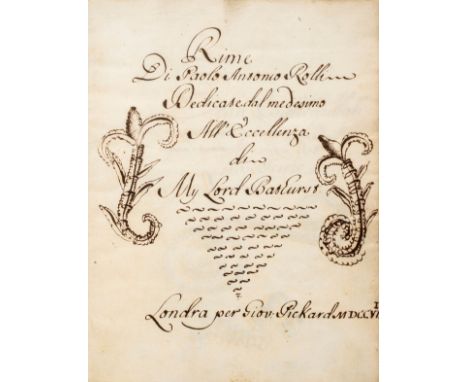 Rime
Di Paolo Antonio Rolli
Dedicate dal medesimo
All' Eccellenza
di
My Lord Baturst
Londra per Giov. Pickard MDCCVI